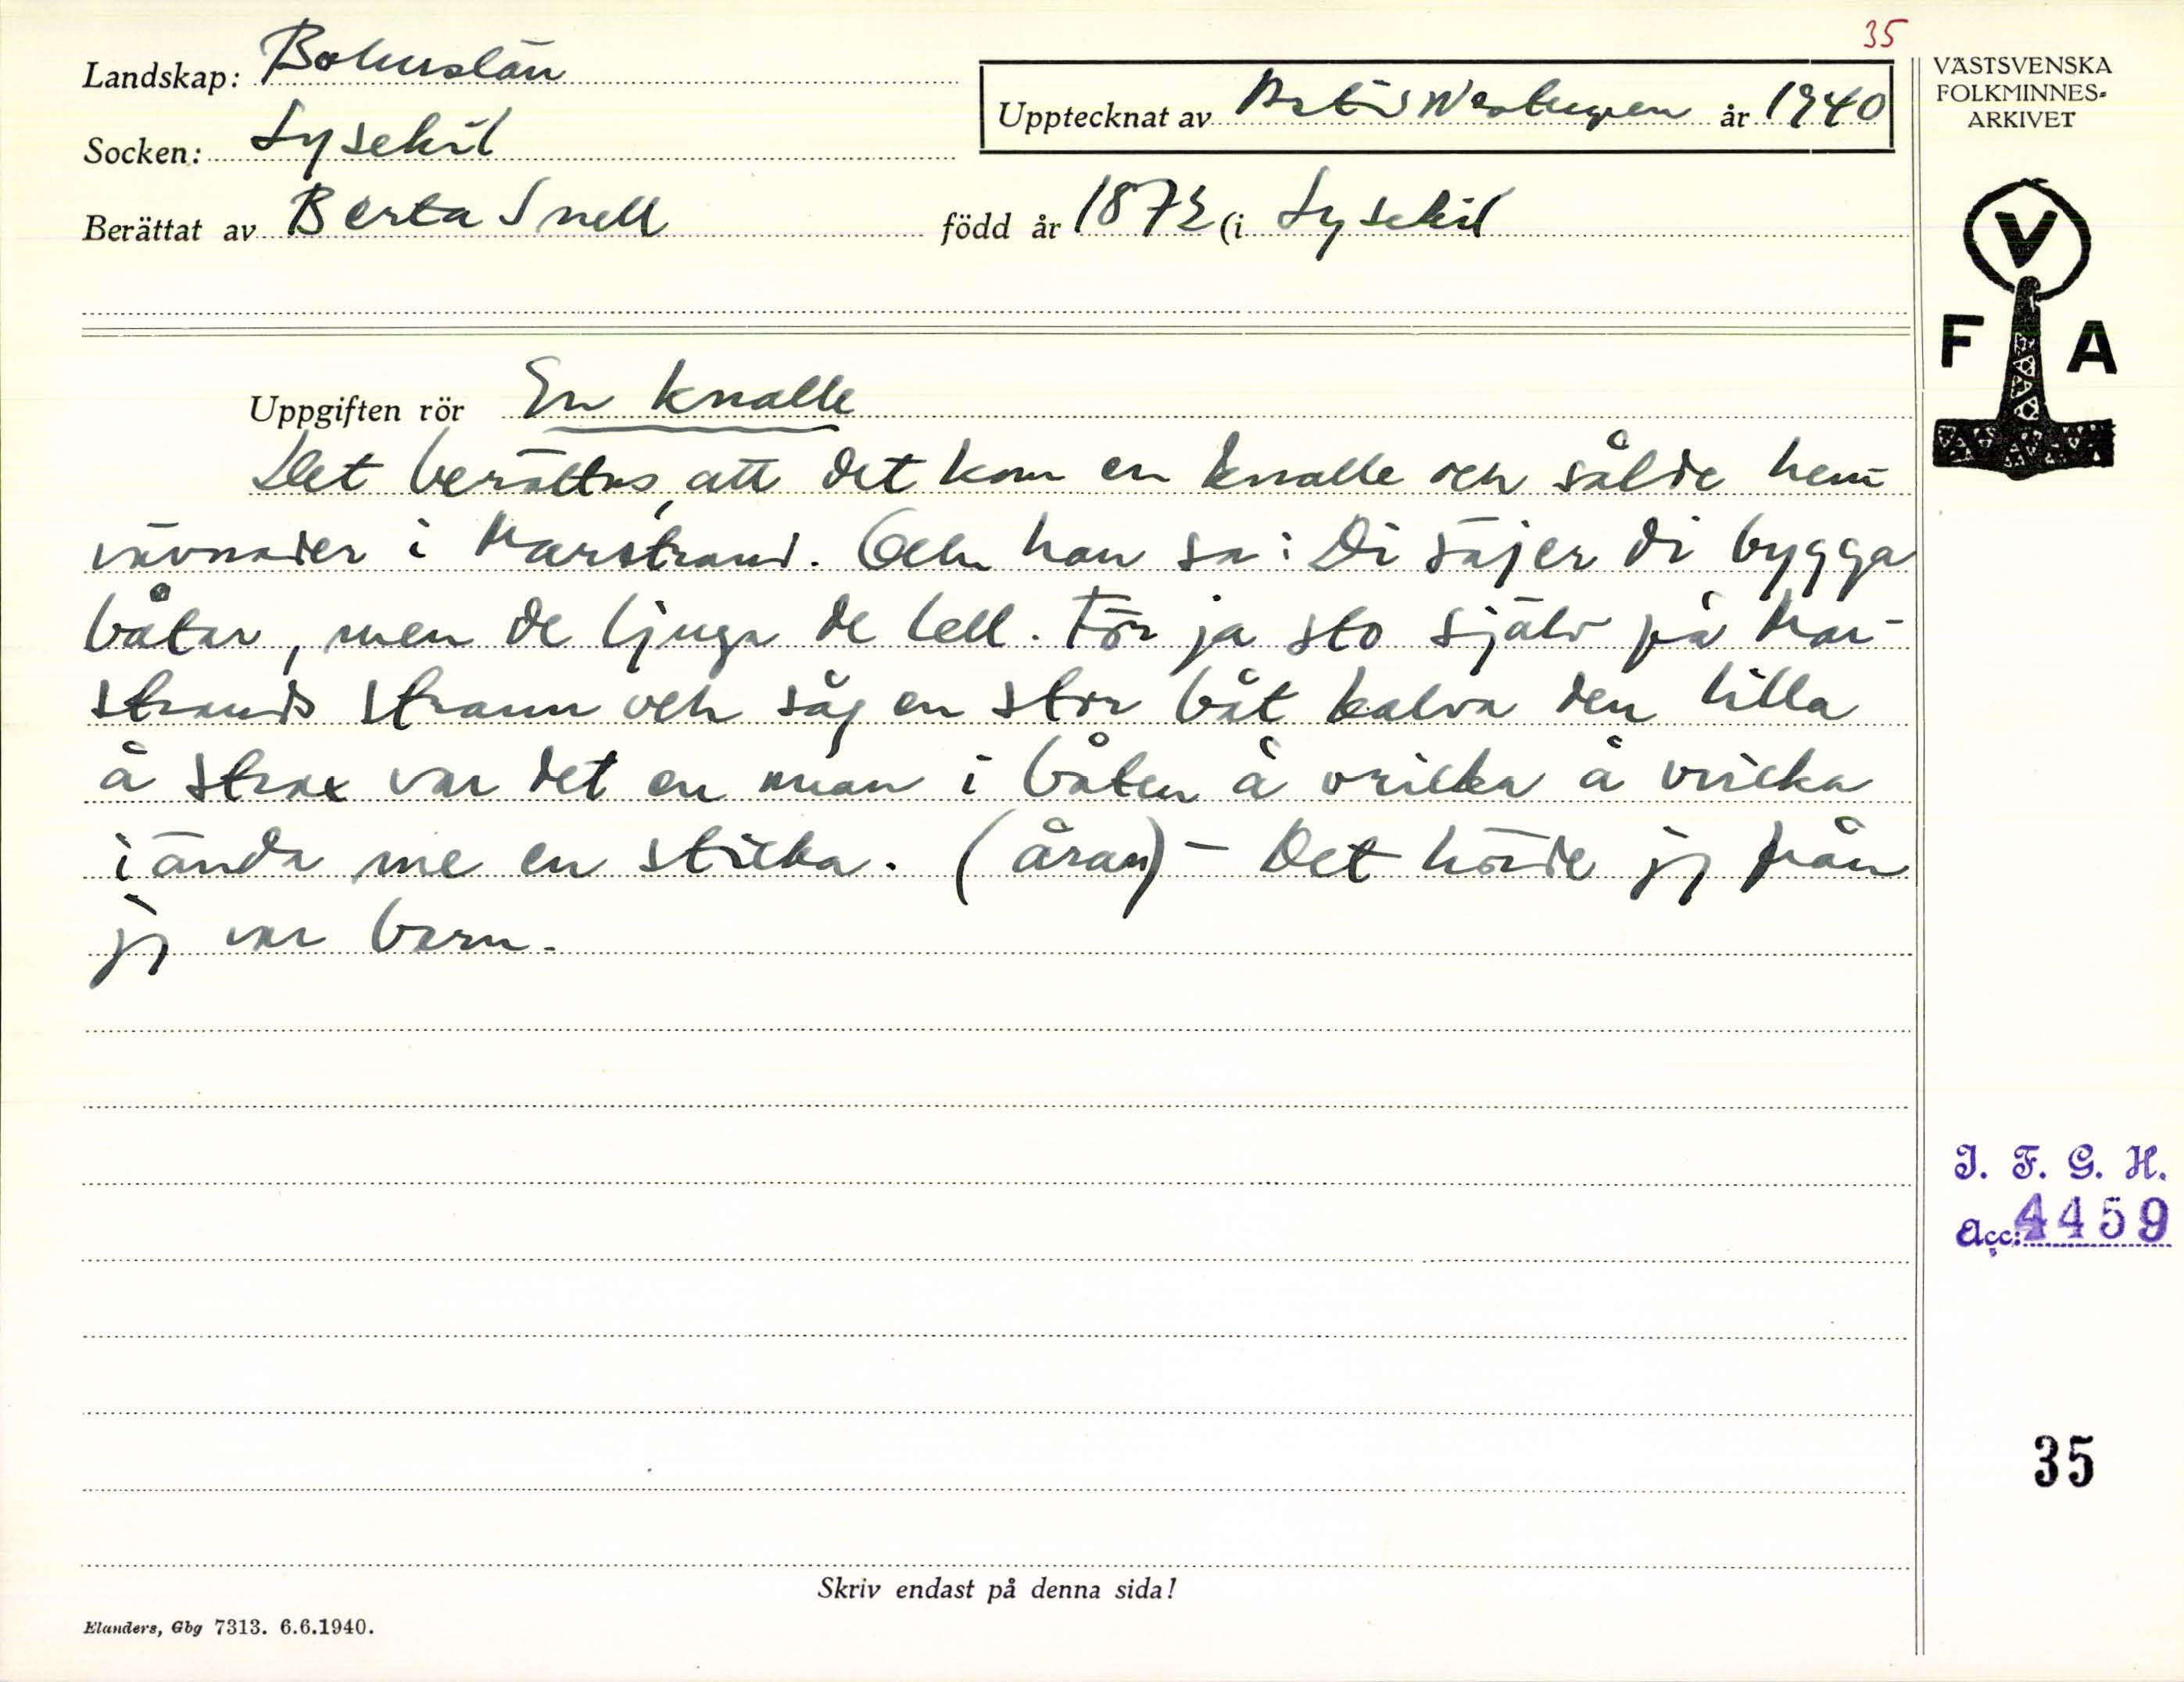 35
Landskap: Bohuslän
Upptecknat av Westergren år 1940
Socken: Lysekil
Berättat av Berta Snell född år 1872 (i Lysekil
VÄSTSVENSKA
FOLKMINNES-
ARKIVET
V
F A
Uppgiften rör En knalle
Det berättas, att det kom en knalle och sålde hem-
vävnader i Marstrand. Och han sa: Di säjer di bygga
båtar, men de ljuga de lell. För ja sto själv på Mar-
strands strann och såg en stor båt kalva den lilla
å strax var det en man i båten å vricka å vricka
i ända me en sticka. (åran) - Det hörde jg från
jg var barn.
I. F. G. H.
Acc: 4459
35
Skriv endast på denna sida!
Elanders, Gbg 7313. 6.6.1940.